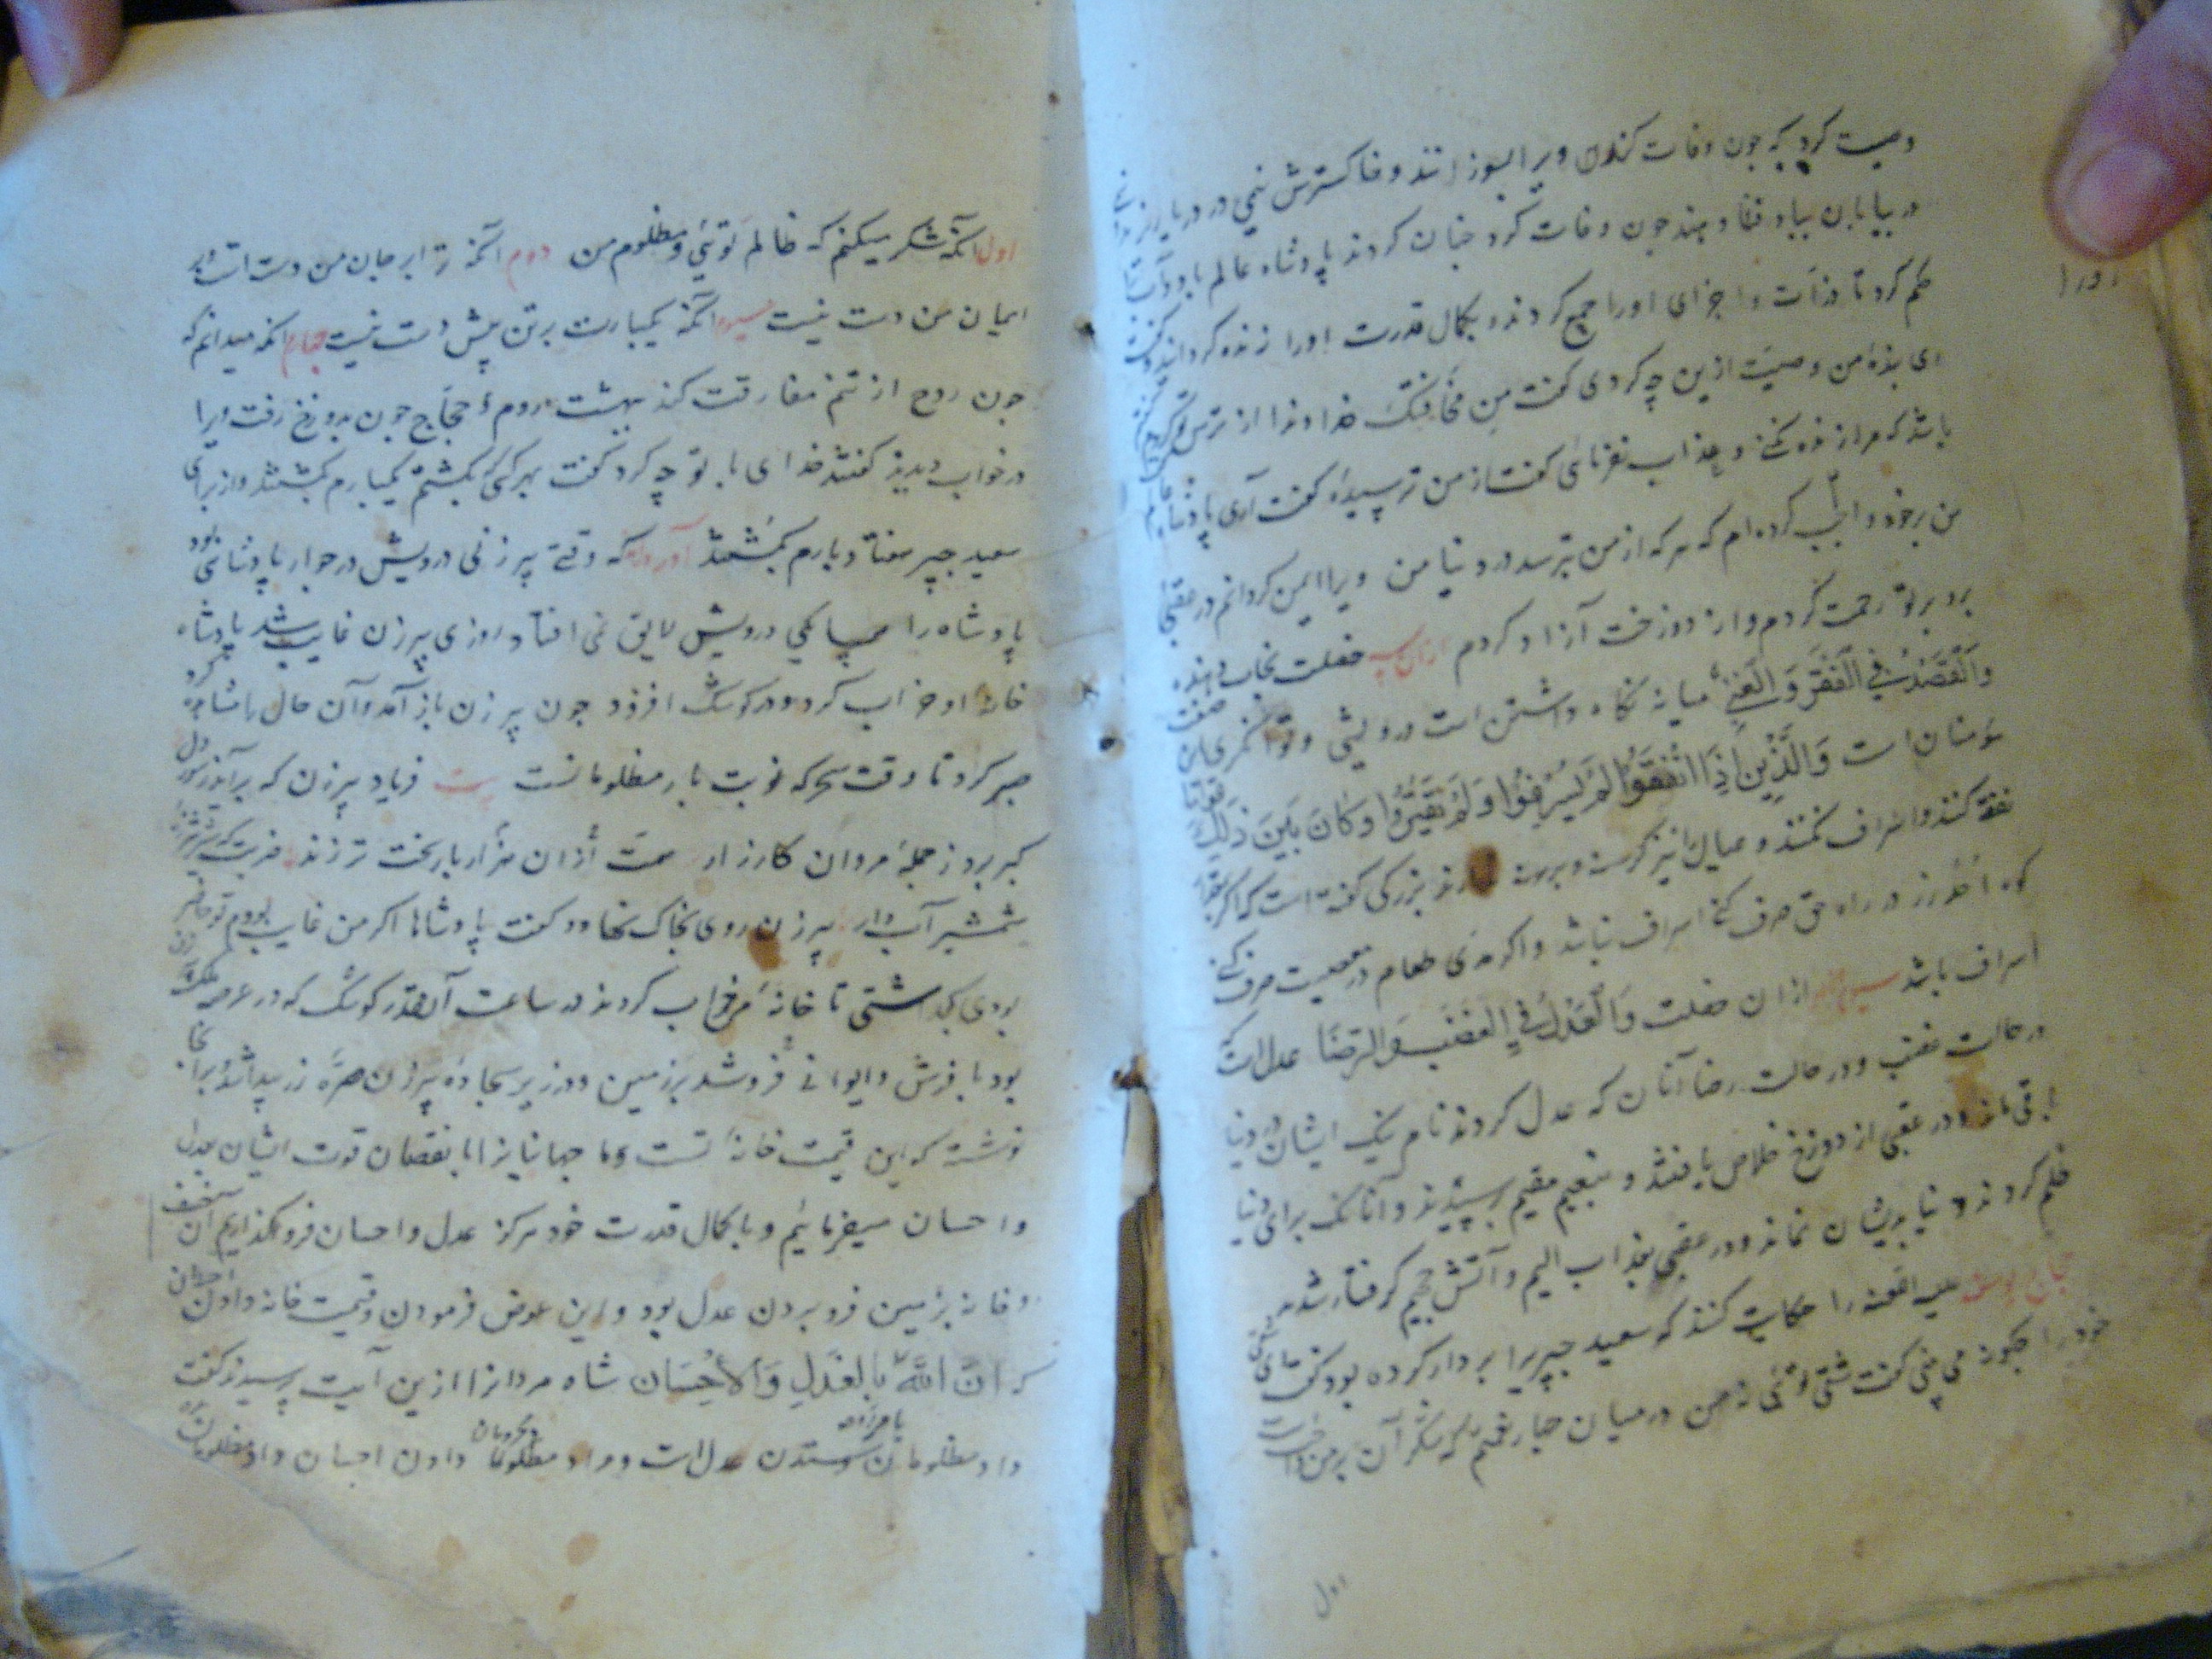 وصیت کرد که چون وفات کند ویرا بسوزانند و خاکسترش نیمی در دریا
در بیابان بباد فنا دهند چون وفات کرد چنان کردند پادشاه عالم باد و آب را
حکم کرد تا ذرات و اجزای او را جمع کردند و بکمال قدرت او را زنده کردانید و گفت
ای بنده من وصیت ازین چه کردی گفت مِن مَخافَتِکَ خداوندا از ترس تو کردم
باشد که مرا زنده نکنی و عذاب نفرمائی گفت از من ترسیدهٔ گفت آری پادشاها
من برخود واجب کرده‌ام که هرکه از من بترسد در دنیا من ویرا ایمن کردانم در عقبی
برو بر تو رحمت کردم و از دوزخت آزاد کردم ازان خصلت نجات دهنده
وَالْقَصْدُ فِی الْفَقْرِ وَ الْغِنٰی میانه نگاه داشتن است درویشی و توانگری صفت
مؤمنان است وَالَّذِینَ اِذَا انْفَقُوا لَمْ یُسْرِفُوا وَ لَمْ یَقْتُرُوا وَ کَانَ بَیْنَ ذٰلِکَ قَوَامًا
نفقه کنند و اسراف نکنند و عیال را نیز گرسنه و برهنه ندارند بزرگی گفته است که اگر
کوه احد زر در راه حق صرف کنی اسراف نباشد و اگر مدی طعام در معصیت صرف کنی
اسراف باشد ازان خصلت وَالْعَدْلُ فِی الْغَضَبِ وَ الرِّضَا عدل است که
در حالت غضب و در حالت رضا آنان که عدل کردند نام نیک ایشان در دنیا
باقی ماند و در عقبی از دوزخ خلاص یافتند و بنعیم مقیم برسیدند و آنانک برای دنیا
ظلم کردند دنیا بدیشان نماند و در عقبی بعذاب الیم و آتش جحیم گرفتار شدند
حجاج یوسف علیه اللعنه را حکایت کنند که سعید جبیر را بر دار کرده بود گفت ای شقی
خود را چگونه می بینی گفت شقی توئی نه من در میان چهار نعمتم که شکر آن بر من واجبست
اول
اول آنکه شکر میکنم که ظالم توئی و مظلوم من دوم آنکه ترا بر جان من دست است و بر
ایمان من دست نیست سیوم آنکه یکبارت برتن بیش دست نیست چهارم آنکه میدانم که
چون روح از تنم مفارقت کند ببهشت روم و حجاج چون بدوزخ رفت ویرا
در خواب دیدند گفتند خدای با تو چه کرد گفت بهر کسی که بکشتم یکبارم بکشتند و از برای
سعید جبیر هفتاد بارم بکشتند آورده‌اند که وقتی پیرزنی درویش در جوار پادشاهی بود
پادشاه را همسایگی درویش لایق نمی افتاد روزی پیرزن غایب شد پادشاه
خانه او خراب کرد و در کوشک افزود چون پیرزن باز آمد و آن حال مشاهده کرد
صبر کرد تا وقت سحر که نوبت بار مظلومانست بیت فریاد پیرزن که برآید ز سوز دل
کبر برد ز حملهٔ مردان کارزار همت ازان هزار بار سخت تر زند ضربت که شیر شرزه
شمشیر آب دار پیرزن روی بخاک نهاد و گفت پادشاها اگر من غایب بودم تو حاضر
بودی بگذاشتی تا خانهٔ من خراب کردند در ساعت آن قدر کوشک که در عرصه
بود با فرش و ایوانی فروشد بزمین و در زیر سجاده پیرزن صرهٔ زر پیدا شد بر آنجا
نوشته که این قیمت خانهٔ تست و ما جهانیان را با نقصان قوت ایشان بعدل
و احسان میفرمائیم و با کمال قدرت خود مرکز عدل و احسان فرو نگذاریم آن
و خانه بزمین فرو بردن عدل بود و این عوض فرمودن و قیمت خانه دادن احسان
که اِنَّ اللّٰهَ بِالْعَدْلِ وَالْاِحْسَان شاه مردان را ازین آیت پرسیدند گفت
داد مظلومان ستدن عدل است و داد مظلومان دادن احسان داد مظلومان